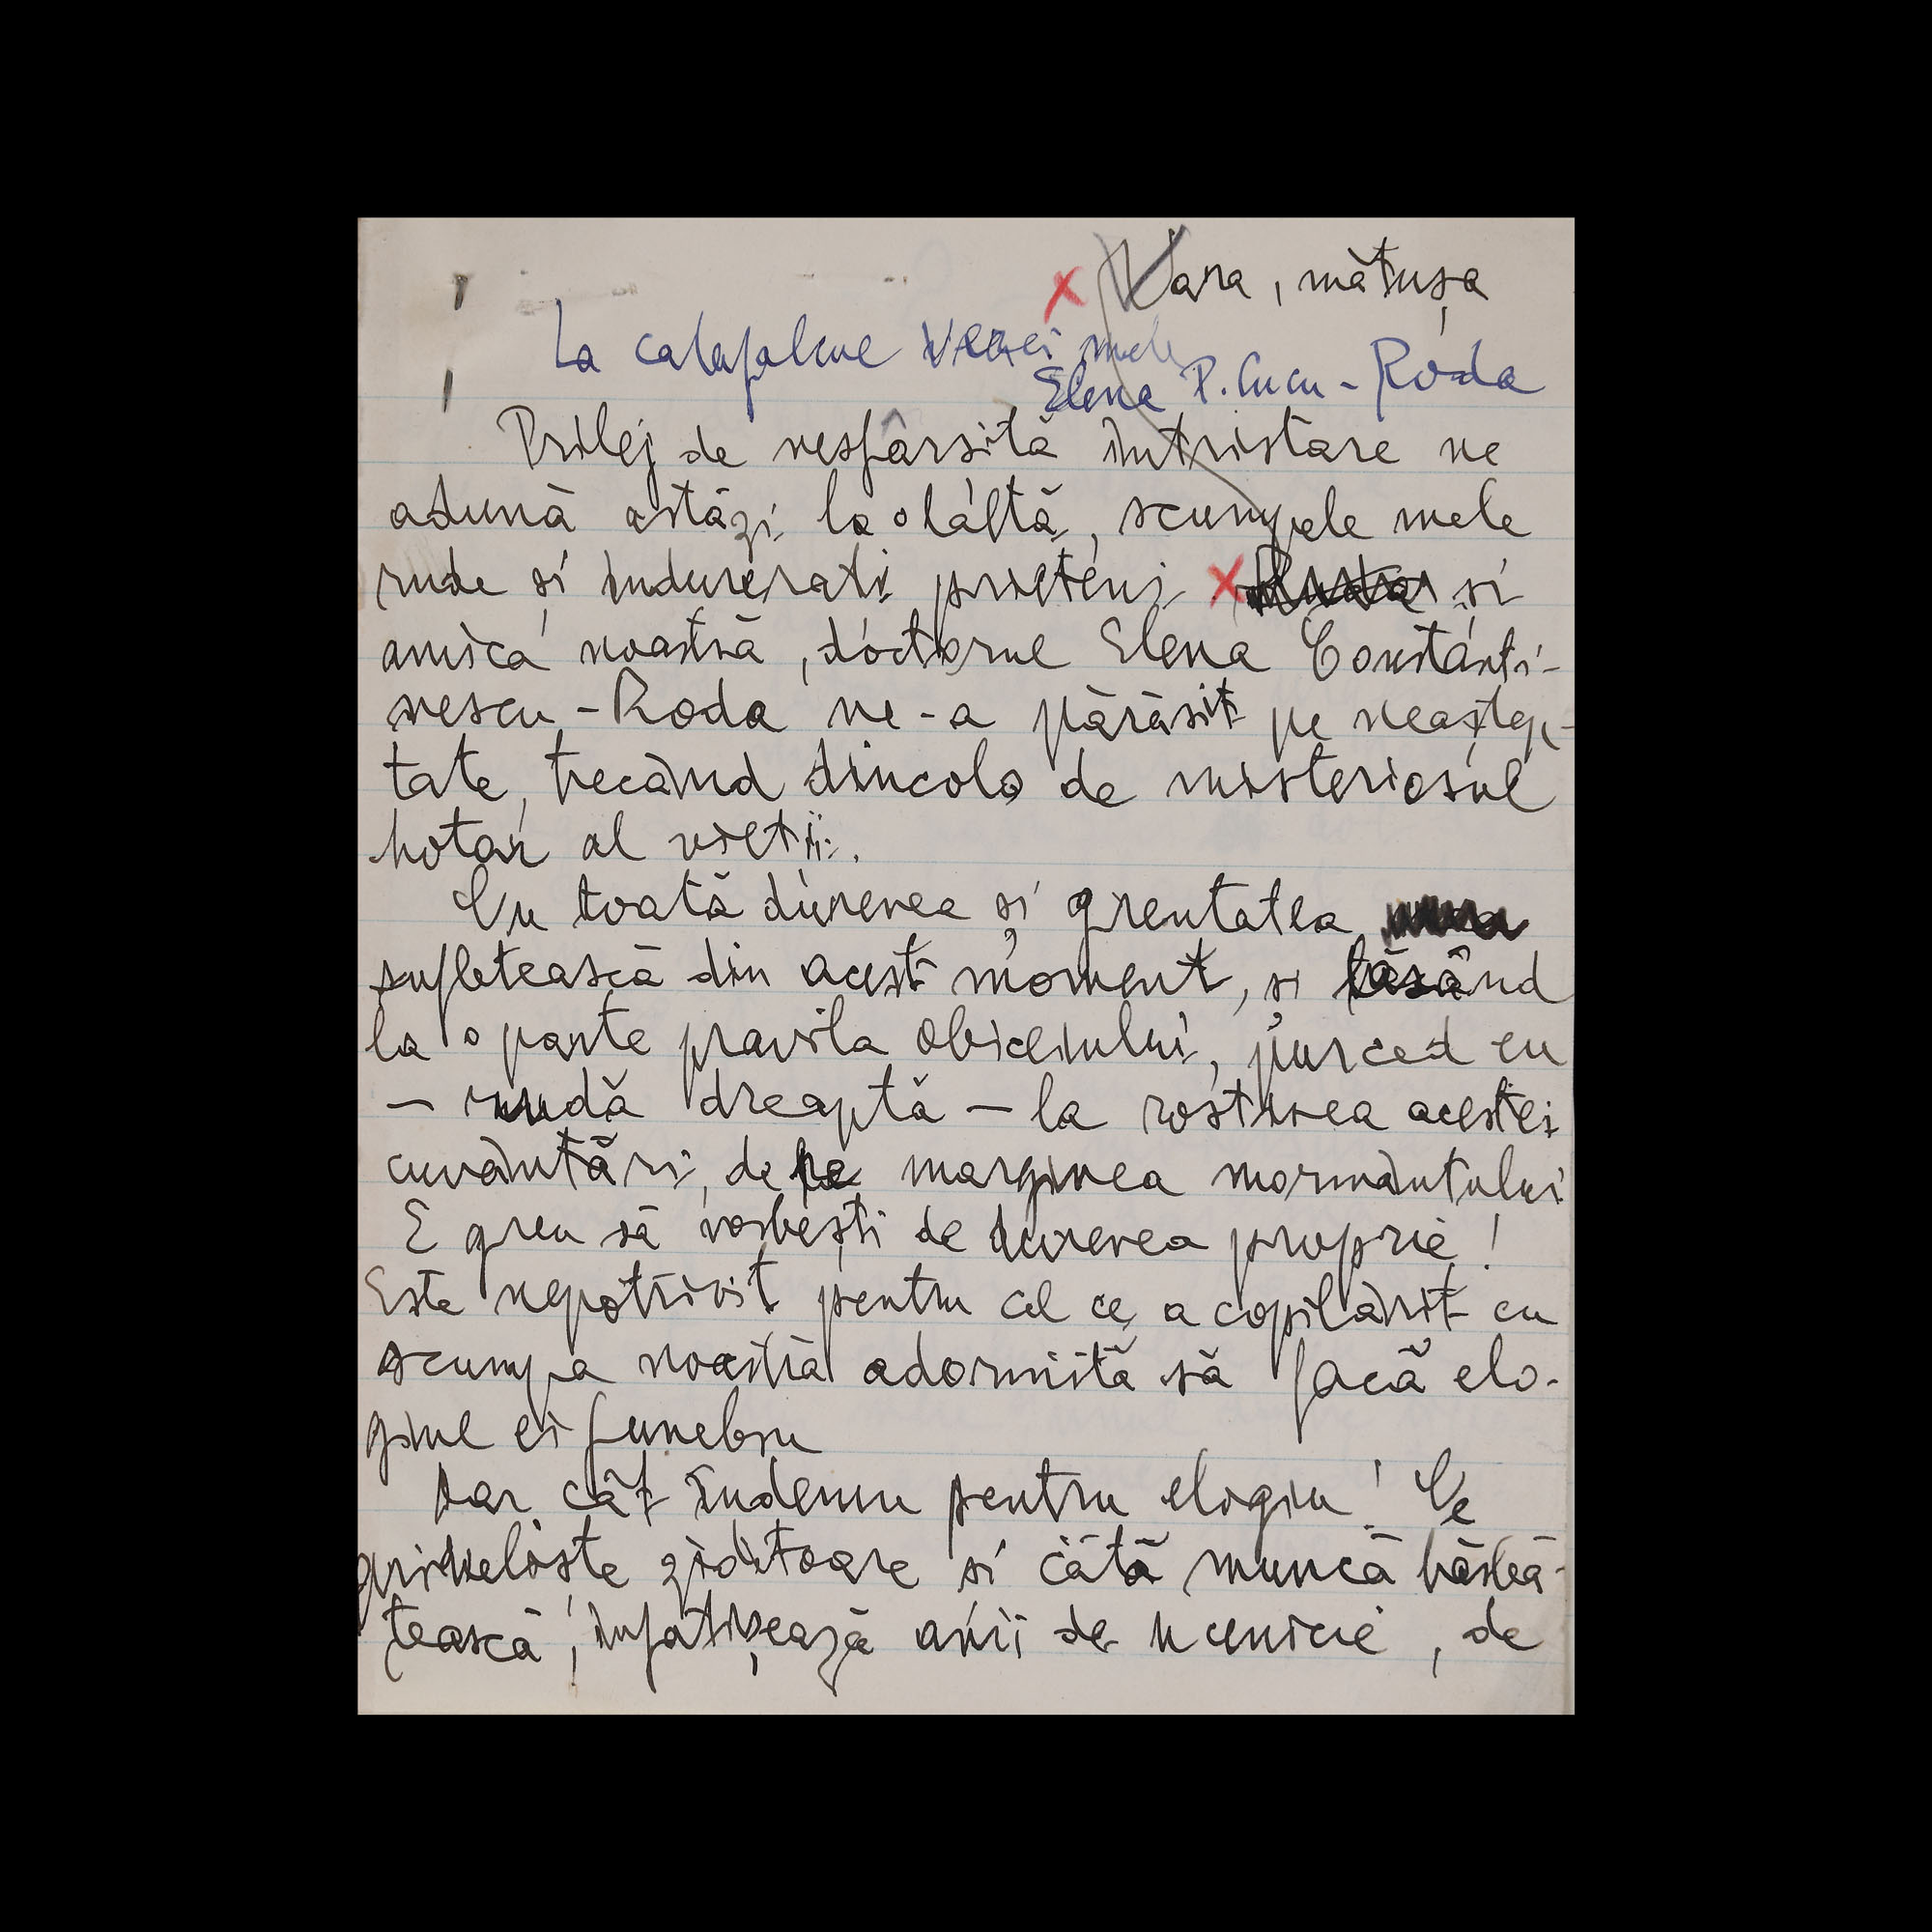 x Vara, mătușa
La catafalcul verei mele
Elena P. Cucu-Roda
Prilej de nesfârsită întristare ne
adună astăzi la olaltă, scumpele mele
rude și îndurerați prieteni x si
amica noastră, doctorul Elena Constanti-
nescu-Roda ne-a părăsit pe neaștep-
tate, trecând dincolo de misteriosul
hotar al vieții.
Cu toată durerea și greutatea
sufletească din acest moment, și lăsând
la o parte pravila obiceiului, purced eu
— rudă dreaptă — la rostirea acestei
cuvântări, de pe marginea mormântului
E greu să vorbești de durerea proprie!
Este nepotrivit pentru cel ce a copilărit cu
scumpa noastră adormită să facă elo-
giul ei funebru
Dar cât îndemn pentru elogiu! Ce
priveliște ziditoare și câtă muncă
tească, înfățișează anii de ucenicie, de